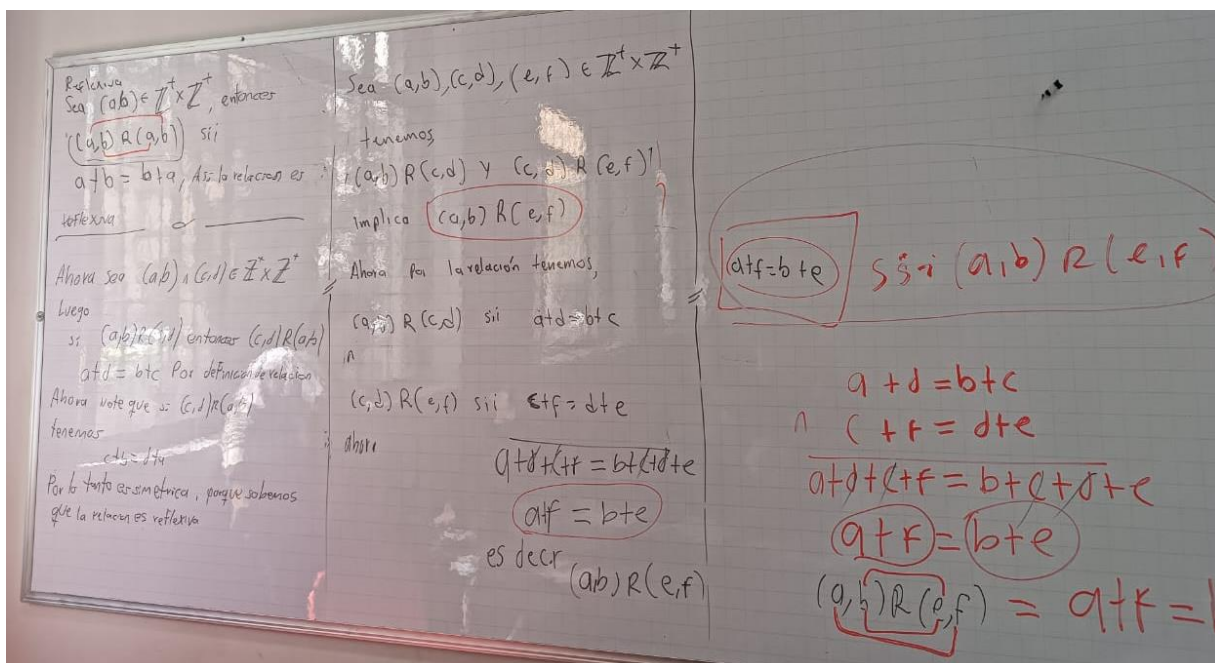 Reflexiva
Sea (a,b) ∈ ℤ⁺ × ℤ⁺, entonces
(a,b) R (a,b) sii
a+b = b+a, Así la relacion es
reflexiva
Ahora sea (a,b) ∧ (c,d) ∈ ℤ⁺ × ℤ⁺
Luego
si (a,b)R(c,d) entonces (c,d)R(a,b)
a+d = b+c Por definicion de relacion
Ahora note que si (c,d)R(a,b)
tenemos
c+b = d+a
Por lo tanto es simetrica, porque sabemos
que la relacion es reflexiva
Sea (a,b), (c,d), (e,f) ∈ ℤ⁺ × ℤ⁺
tenemos,
(a,b) R (c,d) y (c,d) R (e,f)
implica (a,b) R (e,f)
Ahora por la relación tenemos,
(a,b) R (c,d) sii a+d = b+c
∧
(c,d) R (e,f) sii c+f = d+e
ahora
a+d+c+f = b+c+d+e
a+f = b+e
es decir
(a,b) R (e,f)
a+f = b+e ssi (a,b) R (e,f
a + d = b + c
∧ c + f = d+e
a+d+c+f = b+c+d+e
a+f = b+e
(a,b) R (e,f) = a+f =